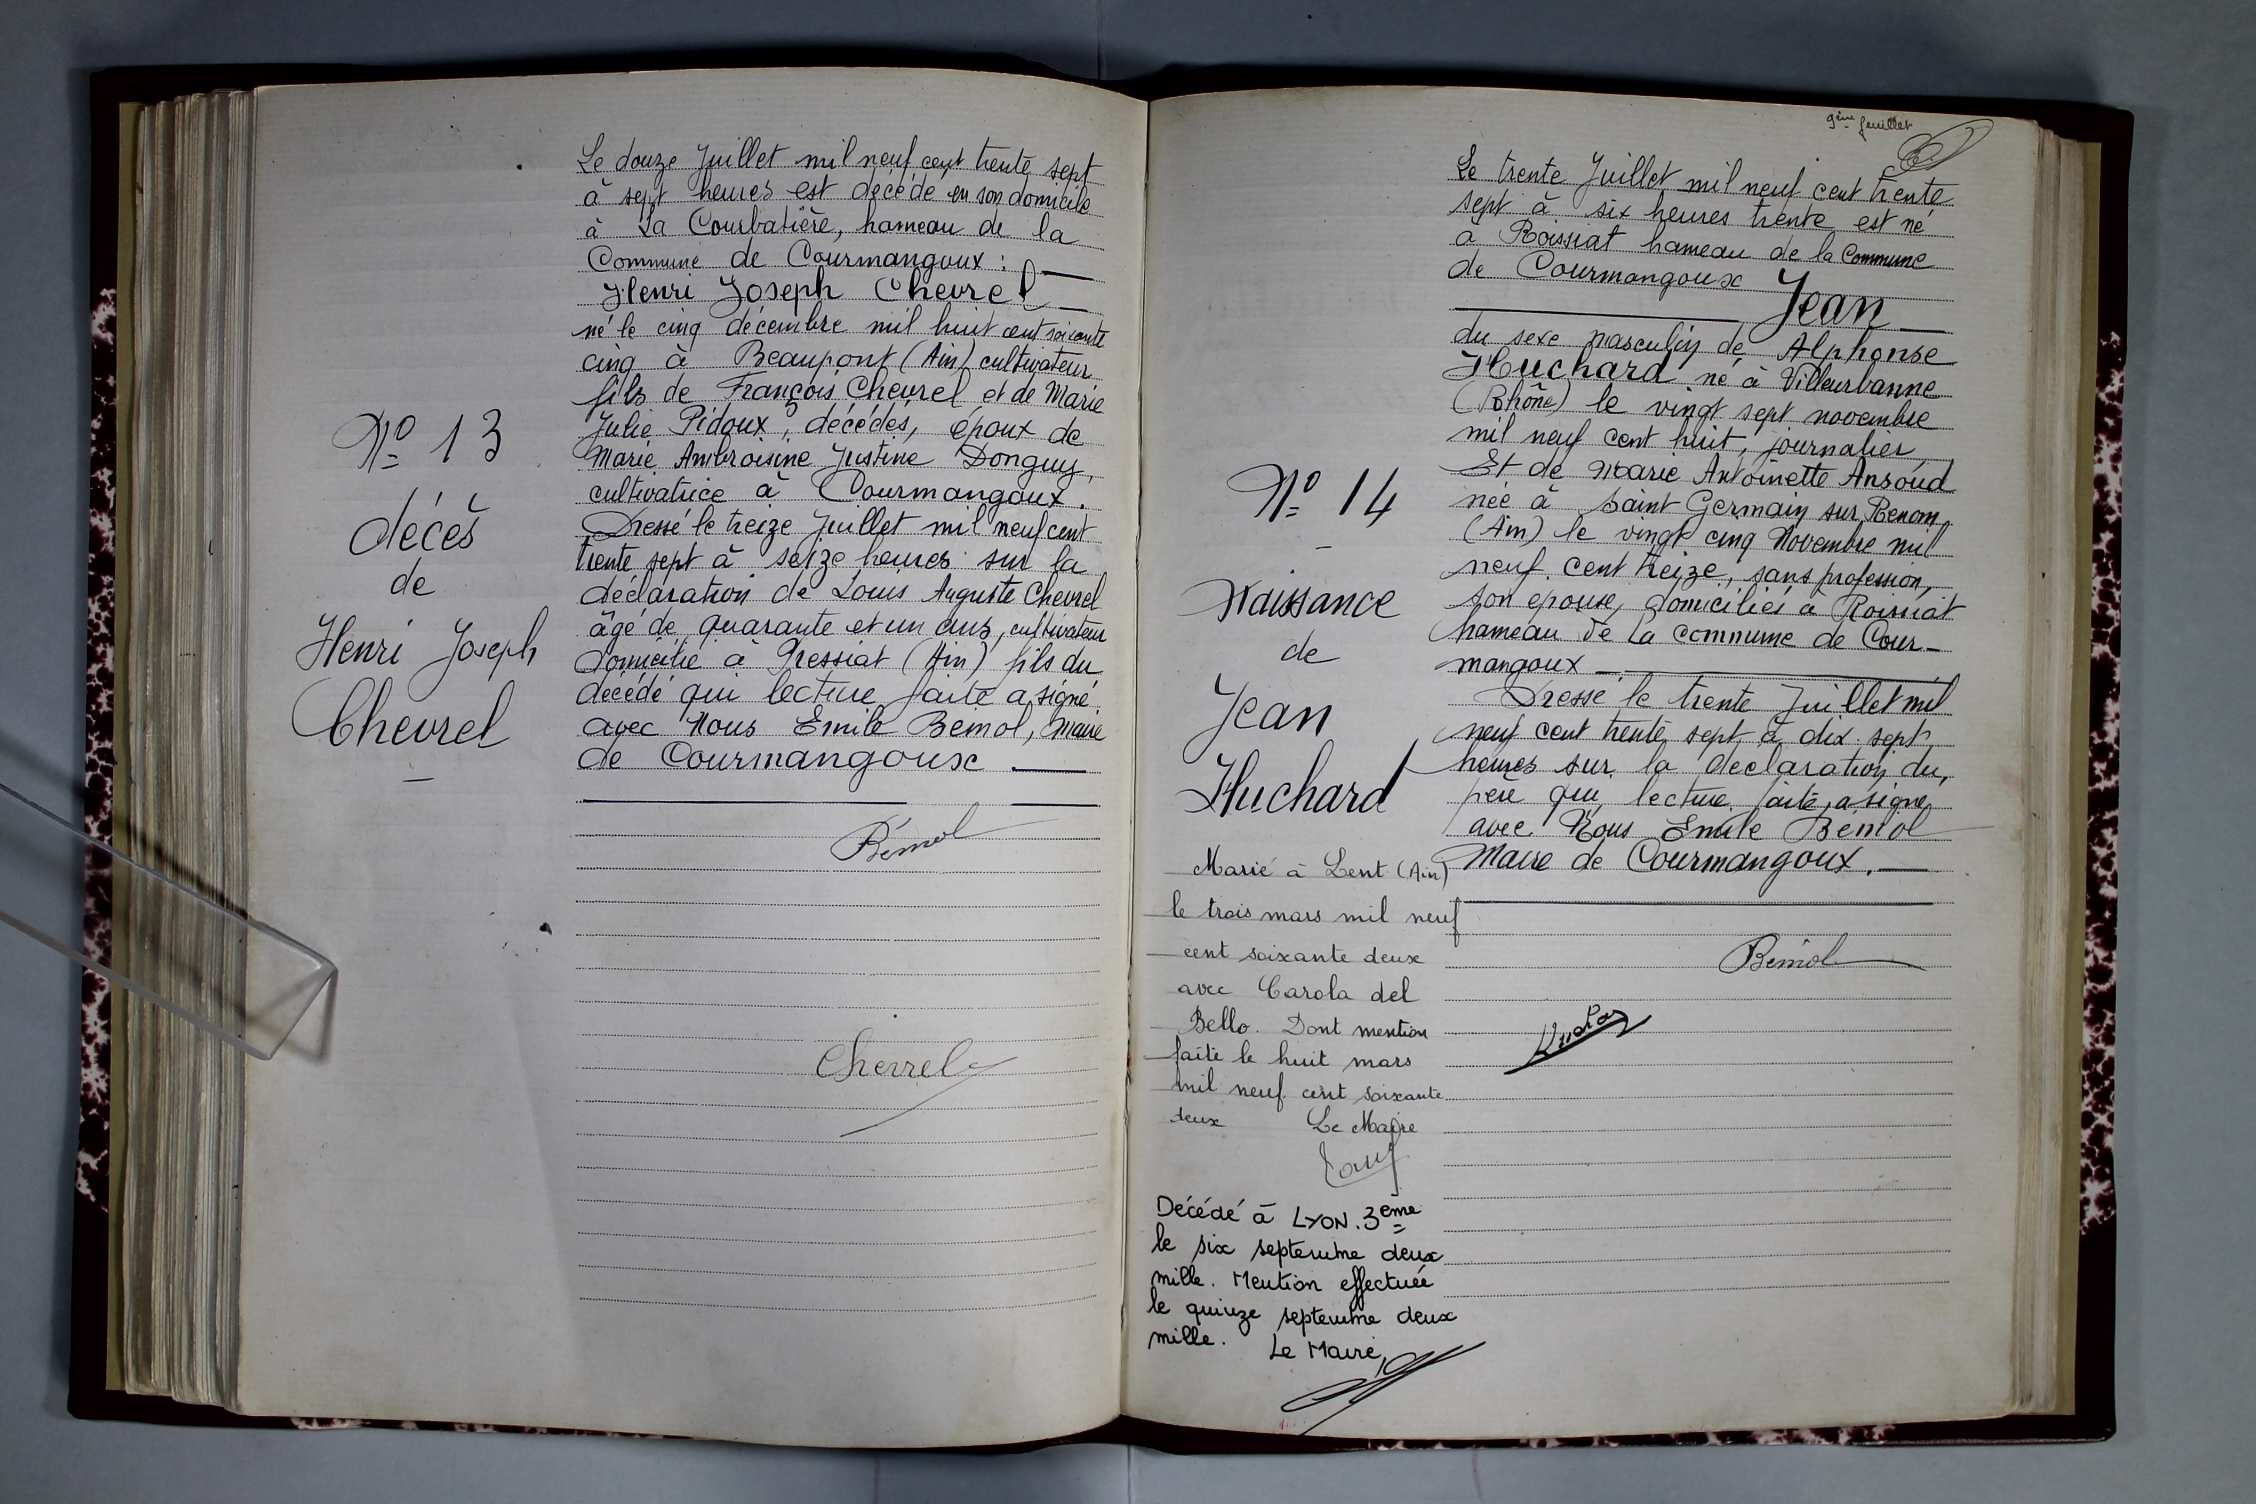 N° 13
décès
de
Henri Joseph
Chevrel
Le douze Juillet mil neuf cent trente sept
à sept heures est décédé en son domicile
à La Courbatière, hameau de la
Commune de Courmangoux :
Henri Joseph Chevrel
né le cinq décembre mil huit cent soixante
cinq à Beaupont (Ain) cultivateur
fils de François Chevrel et de Marie
Julie Pidoux, décédés, époux de
Marie Ambroisine Justine Donguy,
cultivatrice à Courmangoux.
Dressé le treize Juillet mil neuf cent
trente sept à seize heures sur la
déclaration de Louis Auguste Chevrel
âgé de quarante et un ans, cultivateur
domicilié à Pressiat (Ain) fils du
décédé qui lecture faite a signé
avec Nous Emile Bémol, Maire
de Courmangoux
Bémol
Chevrel
9ème feuillet
N° 14
Naissance
de
Jean
Huchard
Marié à Lent (Ain)
le trois mars mil neuf
cent soixante deux
avec Carola del
Bello. Dont mention
faite le huit mars
mil neuf cent soixante
deux Le Maire
Décédé à LYON.3eme
le six septembre deux
mille. Mention effectuée
le quinze septembre deux
mille. Le Maire,
Le trente Juillet mil neuf cent trente
sept à six heures trente est né
à Roissiat hameau de la Commune
de Courmangoux
Jean
du sexe masculin de Alphonse
Huchard né à Villeurbanne
(Rhône) le vingt sept novembre
mil neuf cent huit, journalier
Et de Marie Antoinette Ansoud
née à Saint Germain sur Renom
(Ain) le vingt cinq Novembre mil
neuf cent treize, sans profession,
son épouse, domiciliés à Roissiat
hameau de la commune de Cour-
mangoux
Dressé le trente Juillet mil
neuf cent trente sept à dix sept
heures sur la déclaration du
père qui, lecture faite, a signé
avec Nous Emile Bémol
Maire de Courmangoux.
Bémol